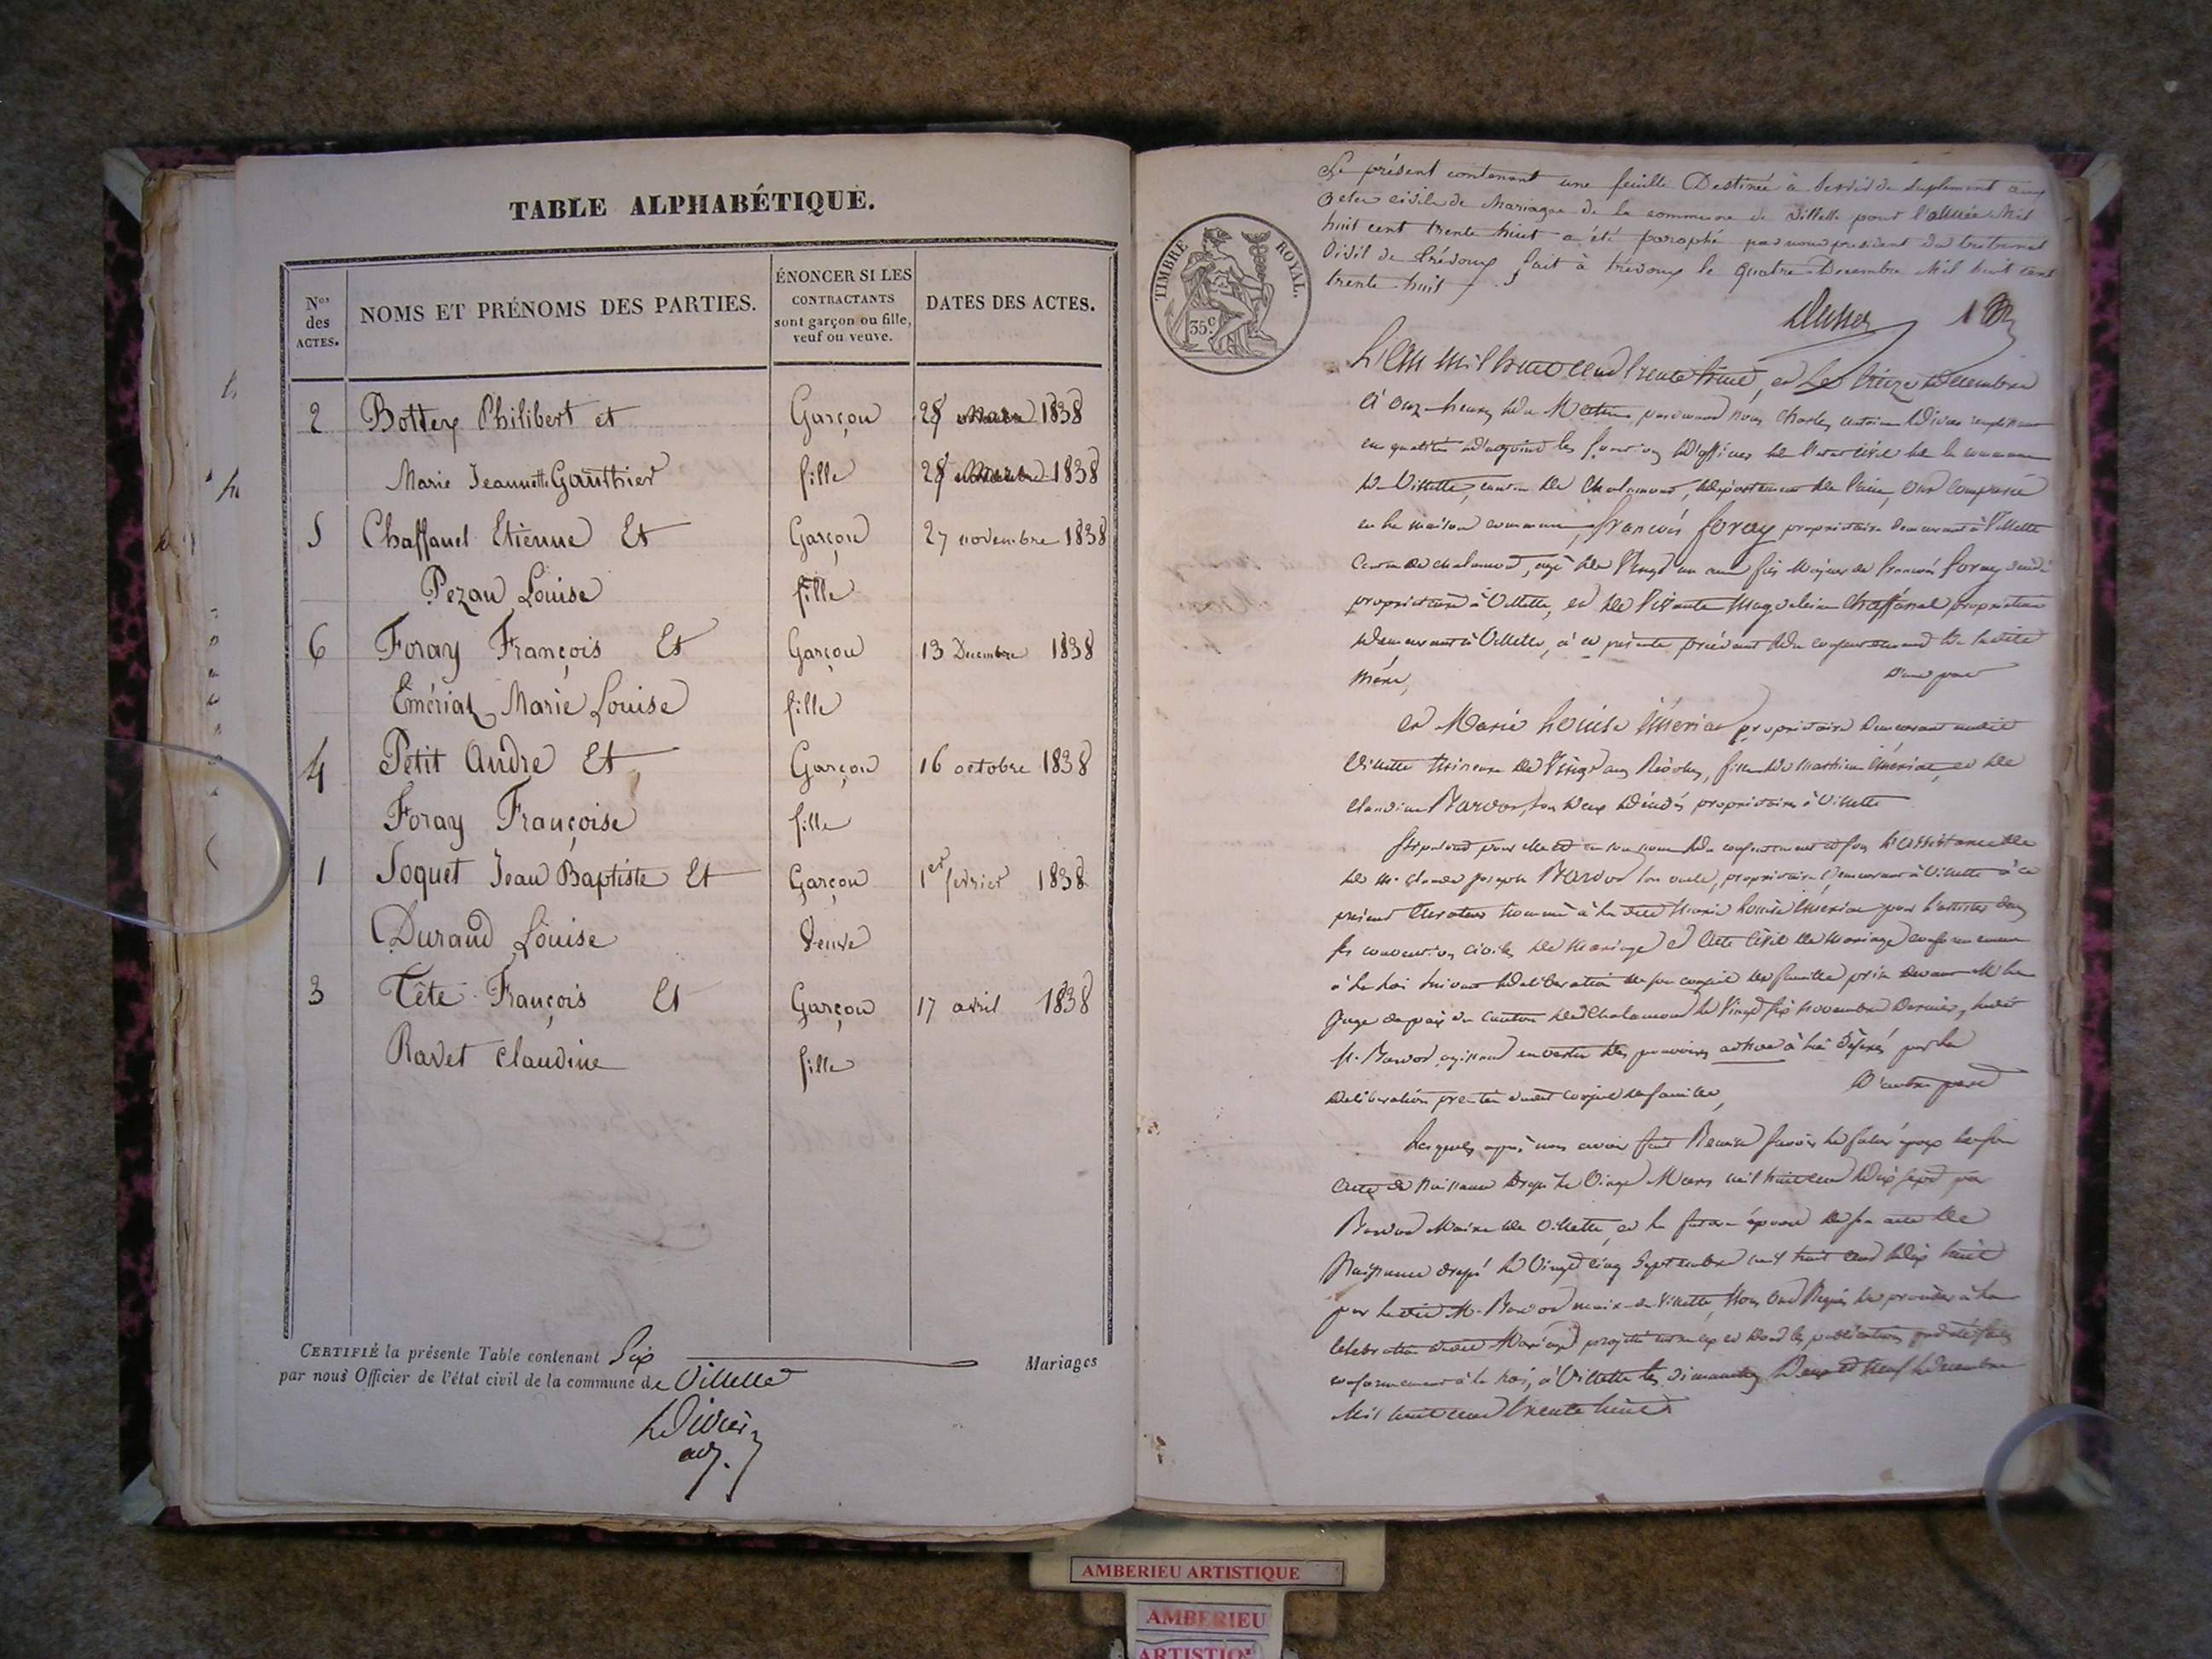 TABLE ALPHABÉTIQUE.
Nos des ACTES.
NOMS ET PRÉNOMS DES PARTIES.
ÉNONCER SI LES CONTRACTANTS sont garçon ou fille, veuf ou veuve.
DATES DES ACTES.
2 Bottex Philibert et Garçon 28 1838
Marie Jeannette Gauthier fille 28 1838
5 Chaffanel Etienne Et Garçon 27 novembre 1838
Pezan Louise fille
6 Foray François Et Garçon 13 Decembre 1838
Emériat Marie Louise fille
4 Petit Andre Et Garçon 16 octobre 1838
Foray Françoise fille
1 Joquet Jean Baptiste Et Garçon 1er fevrier 1838
Durand Louise Veuve
3 Tête François Et Garçon 17 avril 1838
Ravet Claudine fille
CERTIFIÉ la présente Table contenant Six Mariages
par nous Officier de l'état civil de la commune de Villette
TIMBRE ROYAL.
35c
Le présent contenant une feuille Destinée à Servir de Suplement aux
actes civils de Mariages de la commune de Villette pour l'année Mil
huit cent trente huit a été paraphé par nous president du tribunal
Civil de Trévoux, fait à trévoux le quatre Decembre Mil huit cent
trente huit
L'an mil huit cent trente huit, et Le treize decembre
à onze heures du Matin, pardevant nous Charles antoine
en qualité d'adjoint les fonctions d'officier de l'etat civil de la commune
de Villette, canton de Chalamont, departement de l'ain, ont comparu
en la maison commune, françois foray propriétaire demeurant à Villette
Canton de chalamont, agé de Vingt un ans fils Majeur de francois foray
propriétaire à Villette, et de Vivante Magdelaine Chaffanel propriétaire
demeurant à Villette, à ce présente procédant du consentement de ladite
Mère, D'une part
et Marie Louise Emeriat propriétaire demeurant audit
Villette Mineure de Vingt ans Révolus, fille de Mathieu Emeriat, et de
Claudine Barvod, tous deux propriétaires à Villette
pour elle et en son nom du consentement et sous l'assistance
de M. Claude joseph Barvod son oncle, propriétaire demeurant à Villette à ce
présent Curateur nommé à la dite Marie Louise Emeriat pour l'assister dans
ses conventions civiles de Mariage et acte Civil de Mariage conformement
à la loi suivant deliberation de son conseil de famille prise devant M. le
Juge de paix du canton de Chalamont le Vingt six novembre Dernier, ledit
M. Barvod agissant en vertu des pouvoirs à lui déférés par la
deliberation dudit conseil de famille, D'autre part
Lesquels après nous avoir fait Remise savoir le futur époux de son
acte de Naissance Dressé le Vingt Mars mil huit cent dix sept par
Barvod Maire de Villette, et la future épouse de son acte de
Naissance dressé le Vingt cinq Septembre mil huit cent dix huit
par ledit M. Barvod maire de Villette, Nous ont Requis de procéder à la
Celebration dudit Mariage projetté entre eux et dont les publications ont été faites
conformement à la loi, à Villette les dimanches Deux et Neuf decembre
Mil huit cent trente huit
AMBERIEU ARTISTIQUE
AMBERIEU